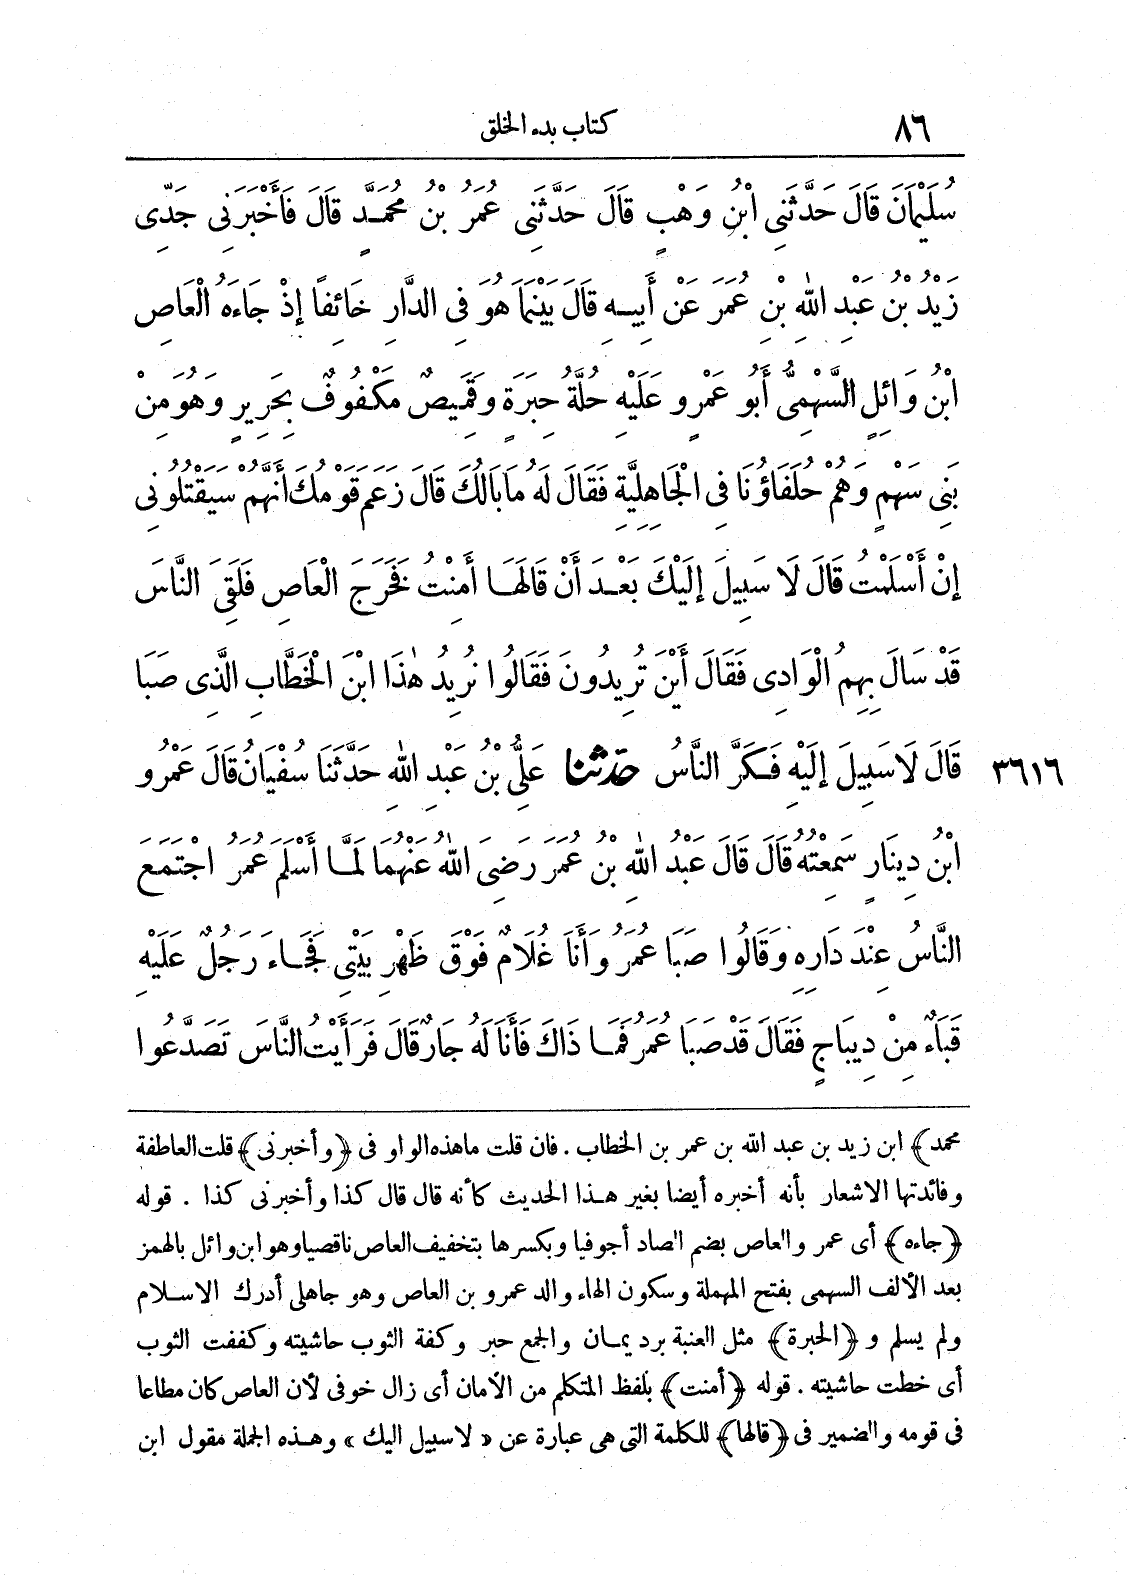 ٨٦
كتاب بدء الخلق
سُلَيْمَانَ قَالَ حَدَّثَنِى ابْنُ وَهْبٍ قَالَ حَدَّثَنِى عُمَرُ بْنُ مُحَمَّدٍ قَالَ فَأَخْبَرَنِى جَدِّى
زَيْدُ بْنُ عَبْدِ اللهِ بْنِ عُمَرَ عَنْ أَبِيهِ قَالَ بَيْنَمَا هُوَ فِى الدَّارِ خَائِفًا إِذْ جَاءَهُ الْعَاصِ
ابْنُ وَائِلٍ السَّهْمِىُّ أَبُو عَمْرٍو عَلَيْهِ حُلَّةُ حِبَرَةٍ وَقَمِيصٌ مَكْفُوفٌ بِحَرِيرٍ وَهُوَ مِنْ
بَنِى سَهْمٍ وَهُمْ حُلَفَاؤُنَا فِى الْجَاهِلِيَّةِ فَقَالَ لَهُ مَا بَالُكَ قَالَ زَعَمَ قَوْمُكَ أَنَّهُمْ سَيَقْتُلُونِى
إِنْ أَسْلَمْتُ قَالَ لَا سَبِيلَ إِلَيْكَ بَعْدَ أَنْ قَالَهَا أَمِنْتُ فَخَرَجَ الْعَاصِ فَلَقِىَ النَّاسَ
قَدْ سَالَ بِهِمُ الْوَادِى فَقَالَ أَيْنَ تُرِيدُونَ فَقَالُوا نُرِيدُ هٰذَا ابْنَ الْخَطَّابِ الَّذِى صَبَا
قَالَ لَا سَبِيلَ إِلَيْهِ فَكَرَّ النَّاسُ حدثنا عَلِىُّ بْنُ عَبْدِ اللهِ حَدَّثَنَا سُفْيَانُ قَالَ عَمْرُو
٣٦١٦
ابْنُ دِينَارٍ سَمِعْتُهُ قَالَ قَالَ عَبْدُ اللهِ بْنُ عُمَرَ رَضِىَ اللهُ عَنْهُمَا لَمَّا أَسْلَمَ عُمَرُ اجْتَمَعَ
النَّاسُ عِنْدَ دَارِهِ وَقَالُوا صَبَا عُمَرُ وَأَنَا غُلَامٌ فَوْقَ ظَهْرِ بَيْتِى فَجَاءَ رَجُلٌ عَلَيْهِ
قَبَاءٌ مِنْ دِيبَاجٍ فَقَالَ قَدْ صَبَا عُمَرُ فَمَا ذَاكَ فَأَنَا لَهُ جَارٌ قَالَ فَرَأَيْتُ النَّاسَ تَصَدَّعُوا
محمد﴾ ابن زيد بن عبد الله بن عمر بن الخطاب . فان قلت ما هذه الواو فى ﴿وأخبرنى﴾ قلت العاطفة
وفائدتها الاشعار بأنه أخبره أيضا بغير هذا الحديث كأنه قال قال كذا وأخبرنى كذا . قوله
﴿جاءه﴾ أى عمر والعاص بضم الصاد أجوفيا وبكسرها بتخفيف العاص ناقصيا وهو ابن وائل بالهمز
بعد الألف السهمى بفتح المهملة وسكون الهاء والد عمرو بن العاص وهو جاهلى أدرك الاسلام
ولم يسلم و ﴿الحبرة﴾ مثل العنبة برد يمان والجمع حبر وكفة الثوب حاشيته وكففت الثوب
أى خطت حاشيته . قوله ﴿أمنت﴾ بلفظ المتكلم من الأمان أى زال خوفى لأن العاص كان مطاعا
فى قومه والضمير فى ﴿قالها﴾ للكلمة التى هى عبارة عن «لا سبيل اليك» وهذه الجملة مقول ابن